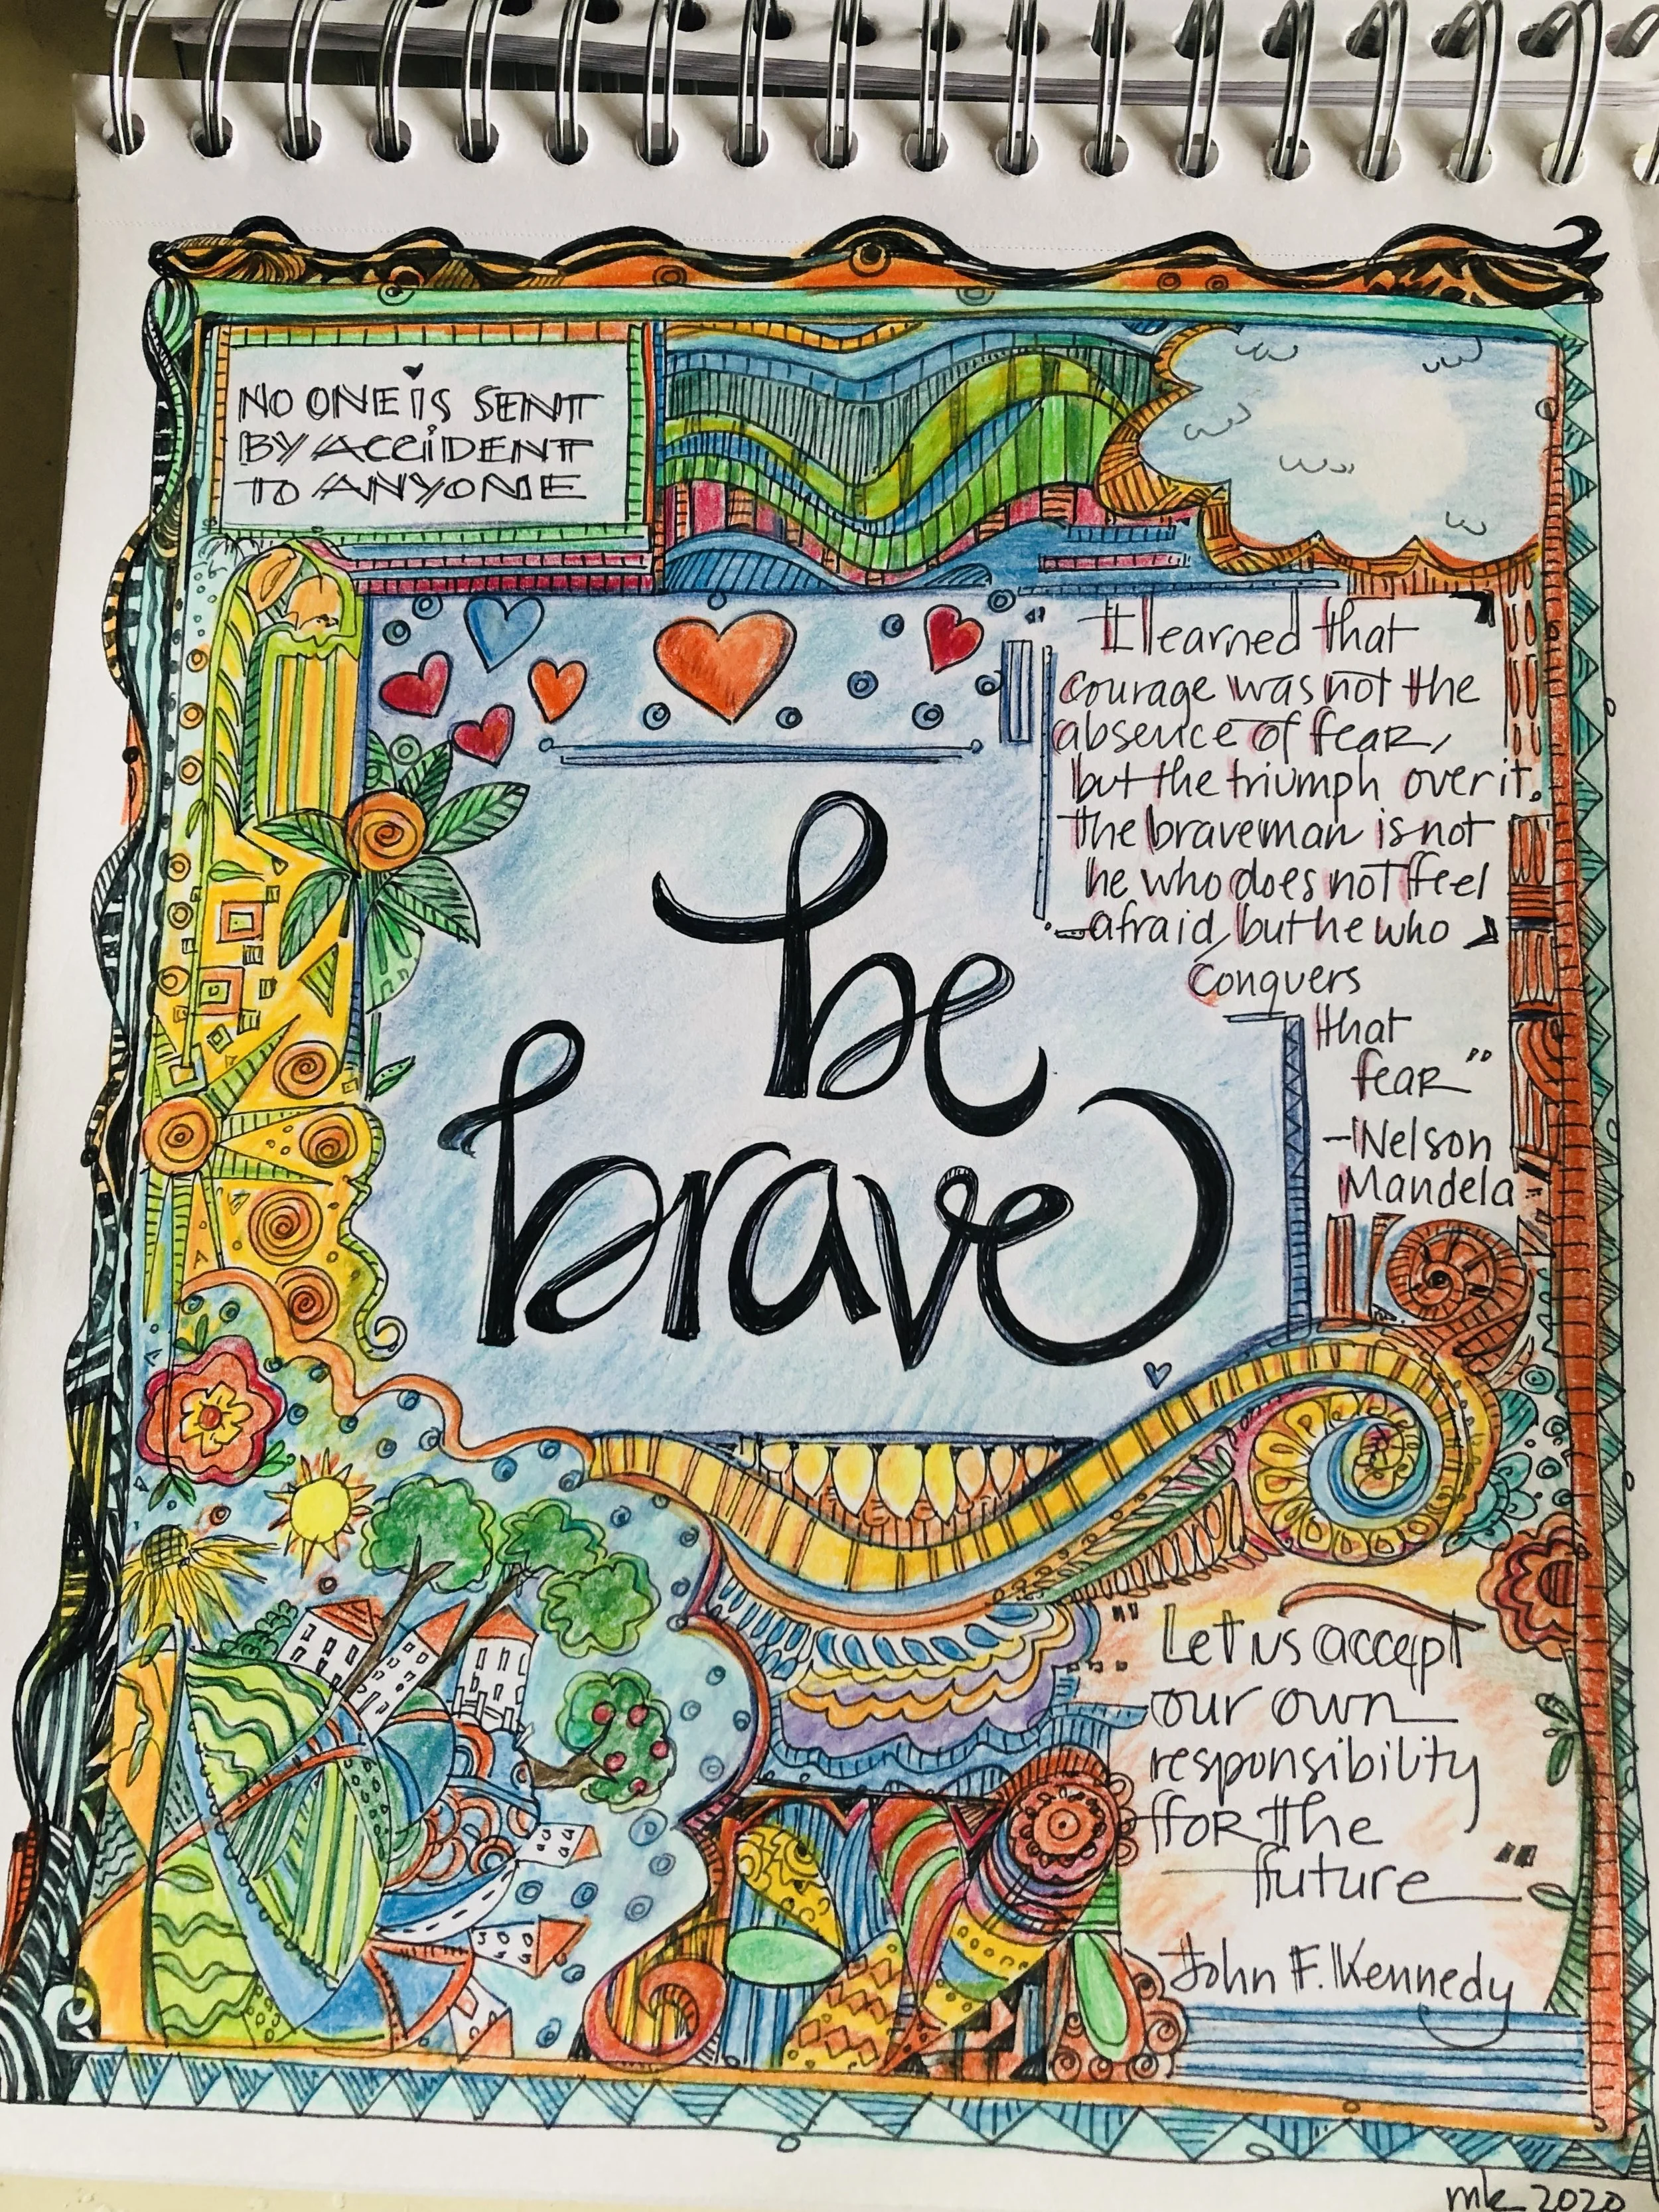 NO ONE iS SENT
BY ACCiDENT
TO ANYONE
"I learned that
courage was not the
absence of fear,
but the triumph over it.
The brave man is not
he who does not feel
afraid, but he who
conquers
that
fear"
-Nelson
Mandela
be
brave
"Let us accept
our own
responsibility
for the
future"
John F. Kennedy
mk 2020